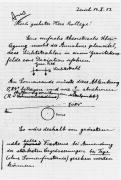 Zürich. 14. X. 13.
Hoch geehrter Herr Kollege!
Eine einfache theoretische Über-
legung macht die Annahme plausibel,
dass Lichtstrahlen in einem Gravitations-
felde eine Deviation erfahren.
Lichtstrahl
Am Sonnenrande müsste diese Ablenkung
0,84" betragen und wie 1/R abnehmen
Sonne
Es wäre deshalb von grösstem
Fixsterne bei Anwendung
der stärksten Vergrösserungen bei Tage
(ohne Sonnenfinsternis) gesehen werden
können.